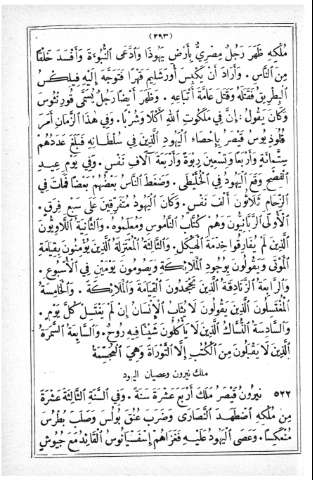 (٣٩٣)
مُلكِهِ ظَهَرَ رَجُلٌ مِصريٌّ بِأَرضِ يَهُوذَا وَادَّعَى النُّبُوءَةَ وَأَفسَدَ خَلقًا
مِنَ النَّاسِ . وَأَرَادَ أَن يَكبِسَ أُورَشَلِيمَ قَهرًا فَتَوَجَّهَ إِلَيهِ فِيلِكسُ
البِطرِيقُ فَقَتَلَهُ وَقَتَلَ عَامَّةَ أَتبَاعِهِ . وَظَهَرَ أَيضًا رَجُلٌ يُسَمَّى قُورِنثُوسَ
وَكَانَ يَقُولُ : إِنَّ فِي مَلَكُوتِ اللهِ أَكلًا وَشُربًا . وَفِي هذَا الزَّمَانِ أَمَرَ
قُلُودِيُوسُ قَيصَرُ بِإِحصَاءِ اليَهُودِ الَّذِينَ فِي سُلطَانِهِ فَبَلَغَ عَدَدُهُم
سِتَّمِائَةٍ وَأَربَعًا وَتِسعِينَ رِبوَةً وَأَربَعَةَ آلَافِ نَفسٍ . وَفِي يَومِ عِيدِ
الفِصحِ وَقَعَ اليَهُودُ فِي الخُلَّيطَى . وَضَغَطَ النَّاسُ بَعضُهُم بَعضًا فَمَاتَ فِي
الزِّحَامِ ثَلَاثُونَ أَلفَ نَفسٍ . وَكَانَ اليَهُودُ مُتَفَرِّقِينَ عَلَى سَبعِ فِرَقٍ .
الأُولَى الرَّبَّانِيُّونَ وَهُم كُتَّابُ النَّامُوسِ وَمُعَلِّمُوهُ . وَالثَّانِيَةُ اللَّاوِيُّونَ
الَّذِينَ لَم يُفَارِقُوا خِدمَةَ الهَيكَلِ . وَالثَّالِثَةُ المُعتَزِلَةُ الَّذِينَ يُؤمِنُونَ بِقِيَامَةِ
المَوتَى وَيَقُولُونَ بِوُجُودِ المَلَائِكَةِ وَيَصُومُونَ يَومَينِ فِي الأُسبُوعِ .
وَالرَّابِعَةُ الزَّنَادِقَةُ الَّذِينَ يَجحَدُونَ القِيَامَةَ وَالمَلَائِكَةَ . وَالخَامِسَةُ
المُغتَسِلُونَ الَّذِينَ يَقُولُونَ لَا يُثَابُ الإِنسَانُ إِن لَم يَغتَسِل كُلَّ يَومٍ .
وَالسَّادِسَةُ النُّسَّاكُ الَّذِينَ لَا يَأكُلُونَ شَيئًا فِيهِ رُوحٌ . وَالسَّابِعَةُ السَّمَرَةُ
الَّذِينَ لَا يَقبَلُونَ مِنَ الكُتُبِ إِلَّا التَّورَاةَ وَهِيَ الخَمسَةُ
ملك نيرون وعصيان اليهود
٥٢٢ نِيرُونُ قَيصَرُ مَلَكَ أَربَعَ عَشرَةَ سَنَةً . وَفِي السَّنَةِ الثَّالِثَةَ عَشرَةَ
مِن مُلكِهِ اضطَهَدَ النَّصَارَى وَضَرَبَ عُنُقَ بُولُسَ وَصَلَبَ بُطرُسَ
مُنَكَّسًا . وَعَصَى اليَهُودُ عَلَيهِ فَغَزَاهُم إِسفَسيَانُوسُ القَائِدُ مَعَ جُيُوشِ